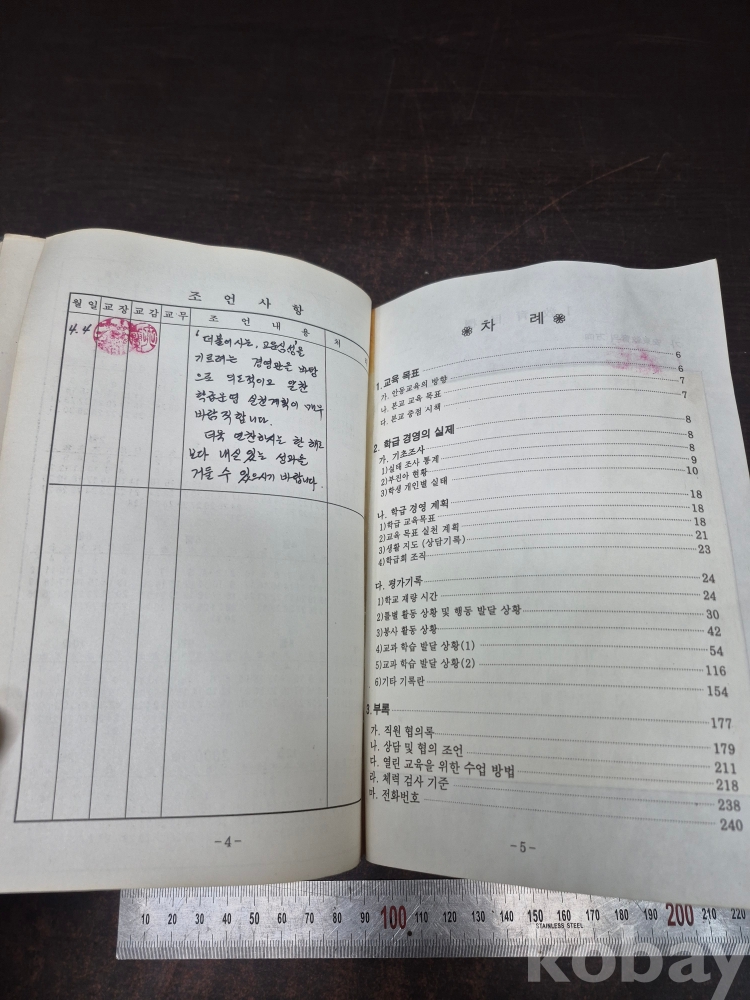 조 언 사 항
월 일 교 장 교 감 교 무 조 언 내 용 처
4. 4 "더불어 사는, 고운 심성"을
기르려는 경영관은 바탕
으로 의도적이고 알찬
학급운영 실천계획이 매우
바람직합니다.
더욱 연찬하시는 한 해로
보다 내실있는 성과를
거둘 수 있으시기 바랍니다.
-4-
차 례
1. 교육 목표 6
가. 안동교육의 방향 6
나. 본교 교육 목표 7
다. 본교 중점 시책 7
2. 학급 경영의 실제 8
가. 기초조사 8
1)실태 조사 통계 8
2)부진아 현황 9
3)학생 개인별 실태 10
나. 학급 경영 계획 18
1)학급 교육목표 18
2)교육 목표 실천 계획 18
3)생활 지도 (상담기록) 21
4)학급회 조직 23
다. 평가기록 24
1)학교 재량 시간 24
2)특별 활동 상황 및 행동 발달 상황 30
3)봉사 활동 상황 42
4)교과 학습 발달 상황(1) 54
5)교과 학습 발달 상황(2) 116
6)기타 기록란 154
3. 부록 177
가. 직원 협의록 179
나. 상담 및 협의 조언 211
다. 열린 교육을 위한 수업 방법 218
라. 체력 검사 기준 238
마. 전화번호 240
-5-
10 20 30 40 50 60 70 80 90 100 110 120 130 140 150 160 170 180 190 200 210 220
STAINLESS STEEL
kobay